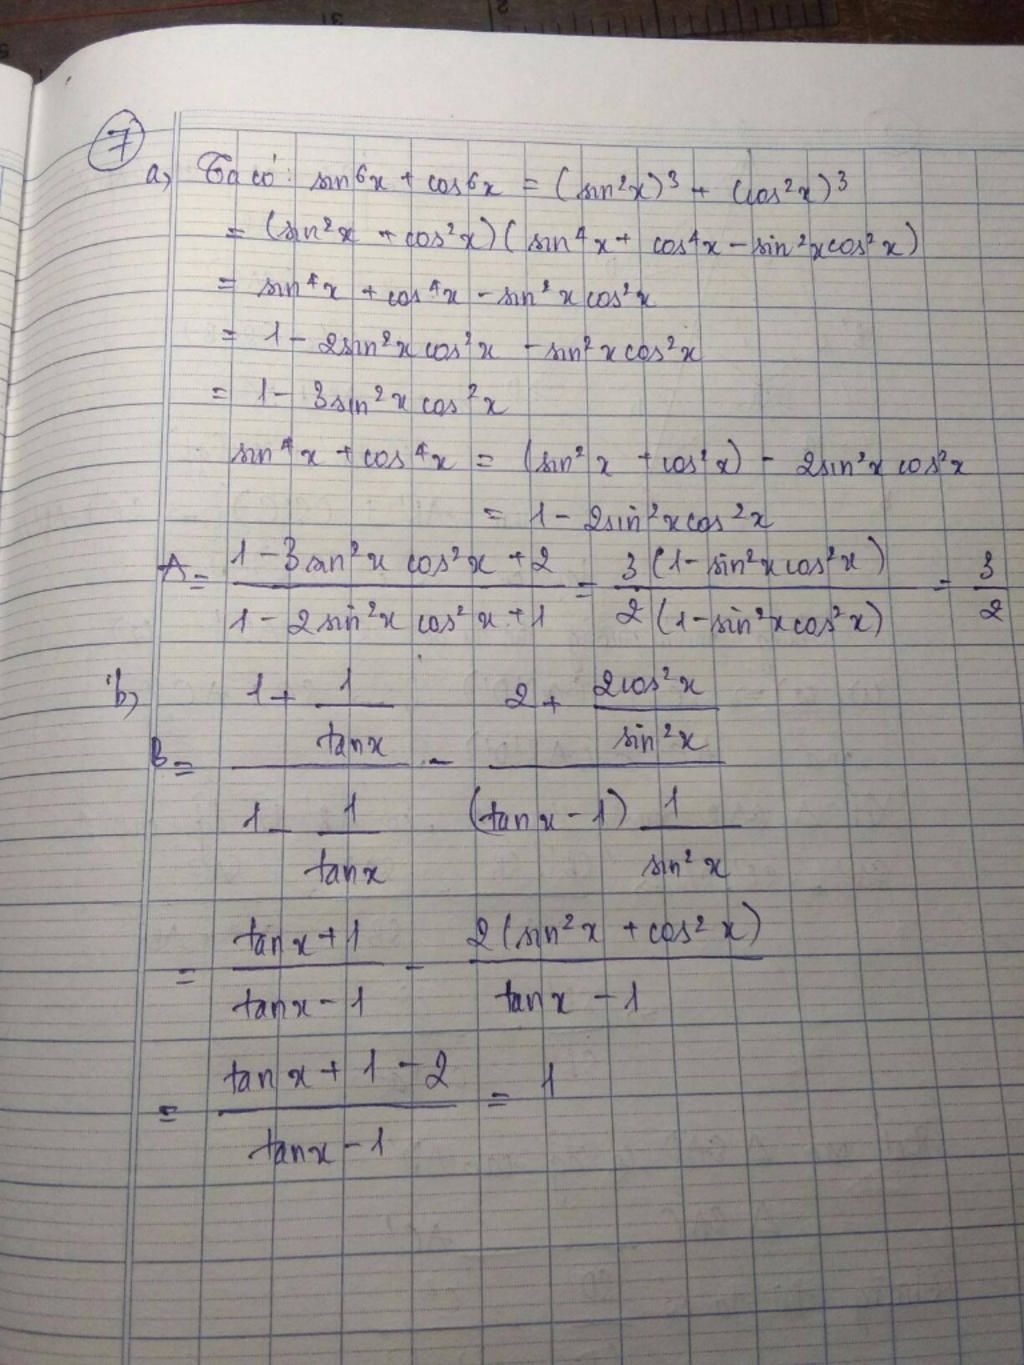 7
a, Ta có: sin⁶x + cos⁶x = (sin²x)³ + (cos²x)³
= (sin²x + cos²x)(sin⁴x + cos⁴x - sin²xcos²x)
= sin⁴x + cos⁴x - sin²xcos²x
= 1 - 2sin²xcos²x - sin²xcos²x
= 1 - 3sin²xcos²x
sin⁴x + cos⁴x = (sin²x + cos²x) - 2sin²xcos²x
= 1 - 2sin²xcos²x
A = (1 - 3sin²xcos²x + 2)/(1 - 2sin²xcos²x + 1) = 3(1 - sin²xcos²x)/2(1 - sin²xcos²x) = 3/2
b,
B = (1 + 1/tanx)/(1 - 1/tanx) - (2 + 2cos²x/sin²x)/((tanx - 1) 1/sin²x)
= (tanx + 1)/(tanx - 1) - 2(sin²x + cos²x)/(tanx - 1)
= (tanx + 1 - 2)/(tanx - 1) = 1